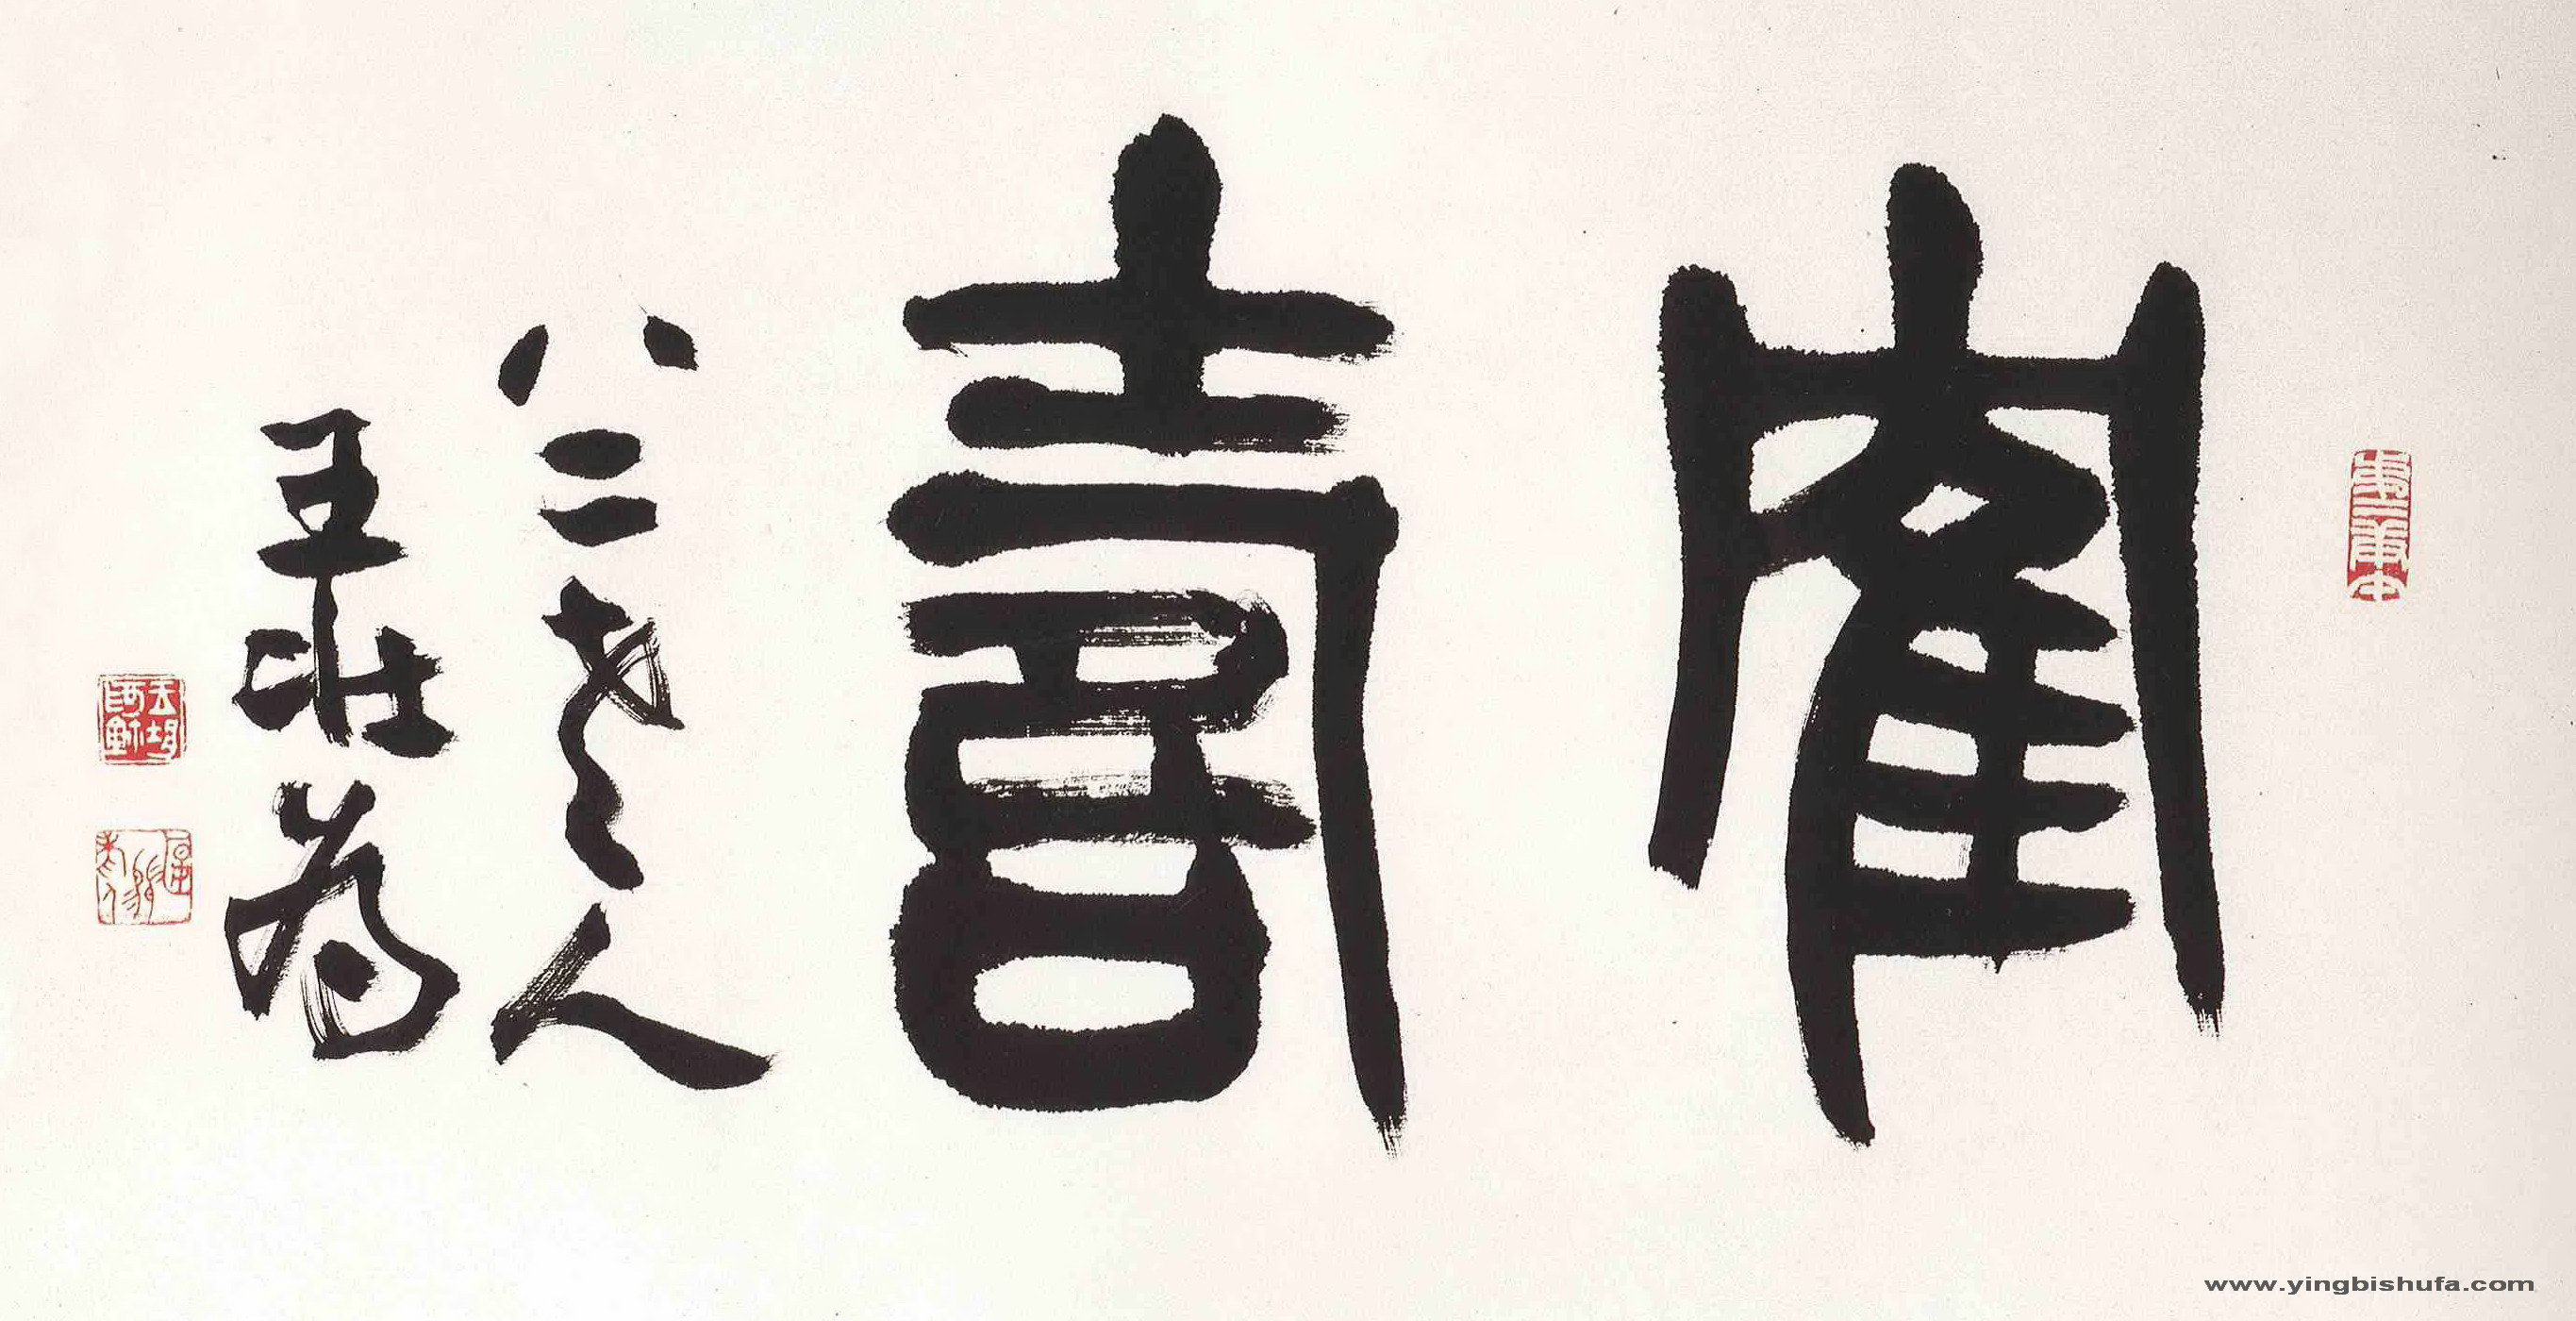 隺壽
八二老人
王壯為
www.yingbishufa.com